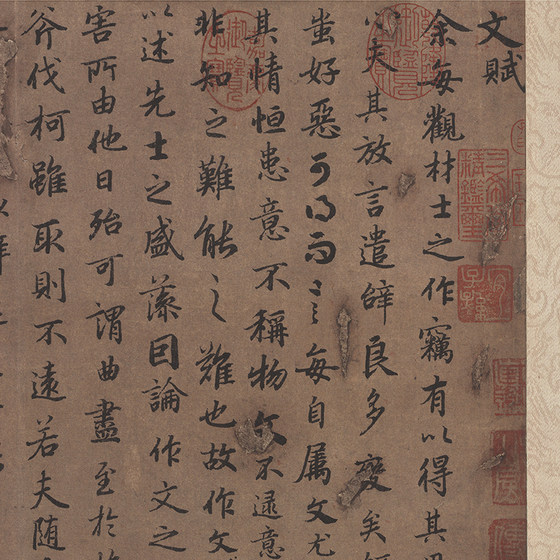 文賦
余每觀材士之作竊有以得其
心夫其放言遣辭良多變矣妍
蚩好惡可得而言每自属文尤
其情恒患意不稱物文不逮意
非知之難能之難也故作文
以述先士之盛藻因論作文之
害所由他日殆可謂曲盡至於
斧伐柯雖取則不遠若夫随
三希堂精鑑璽
宜子孫